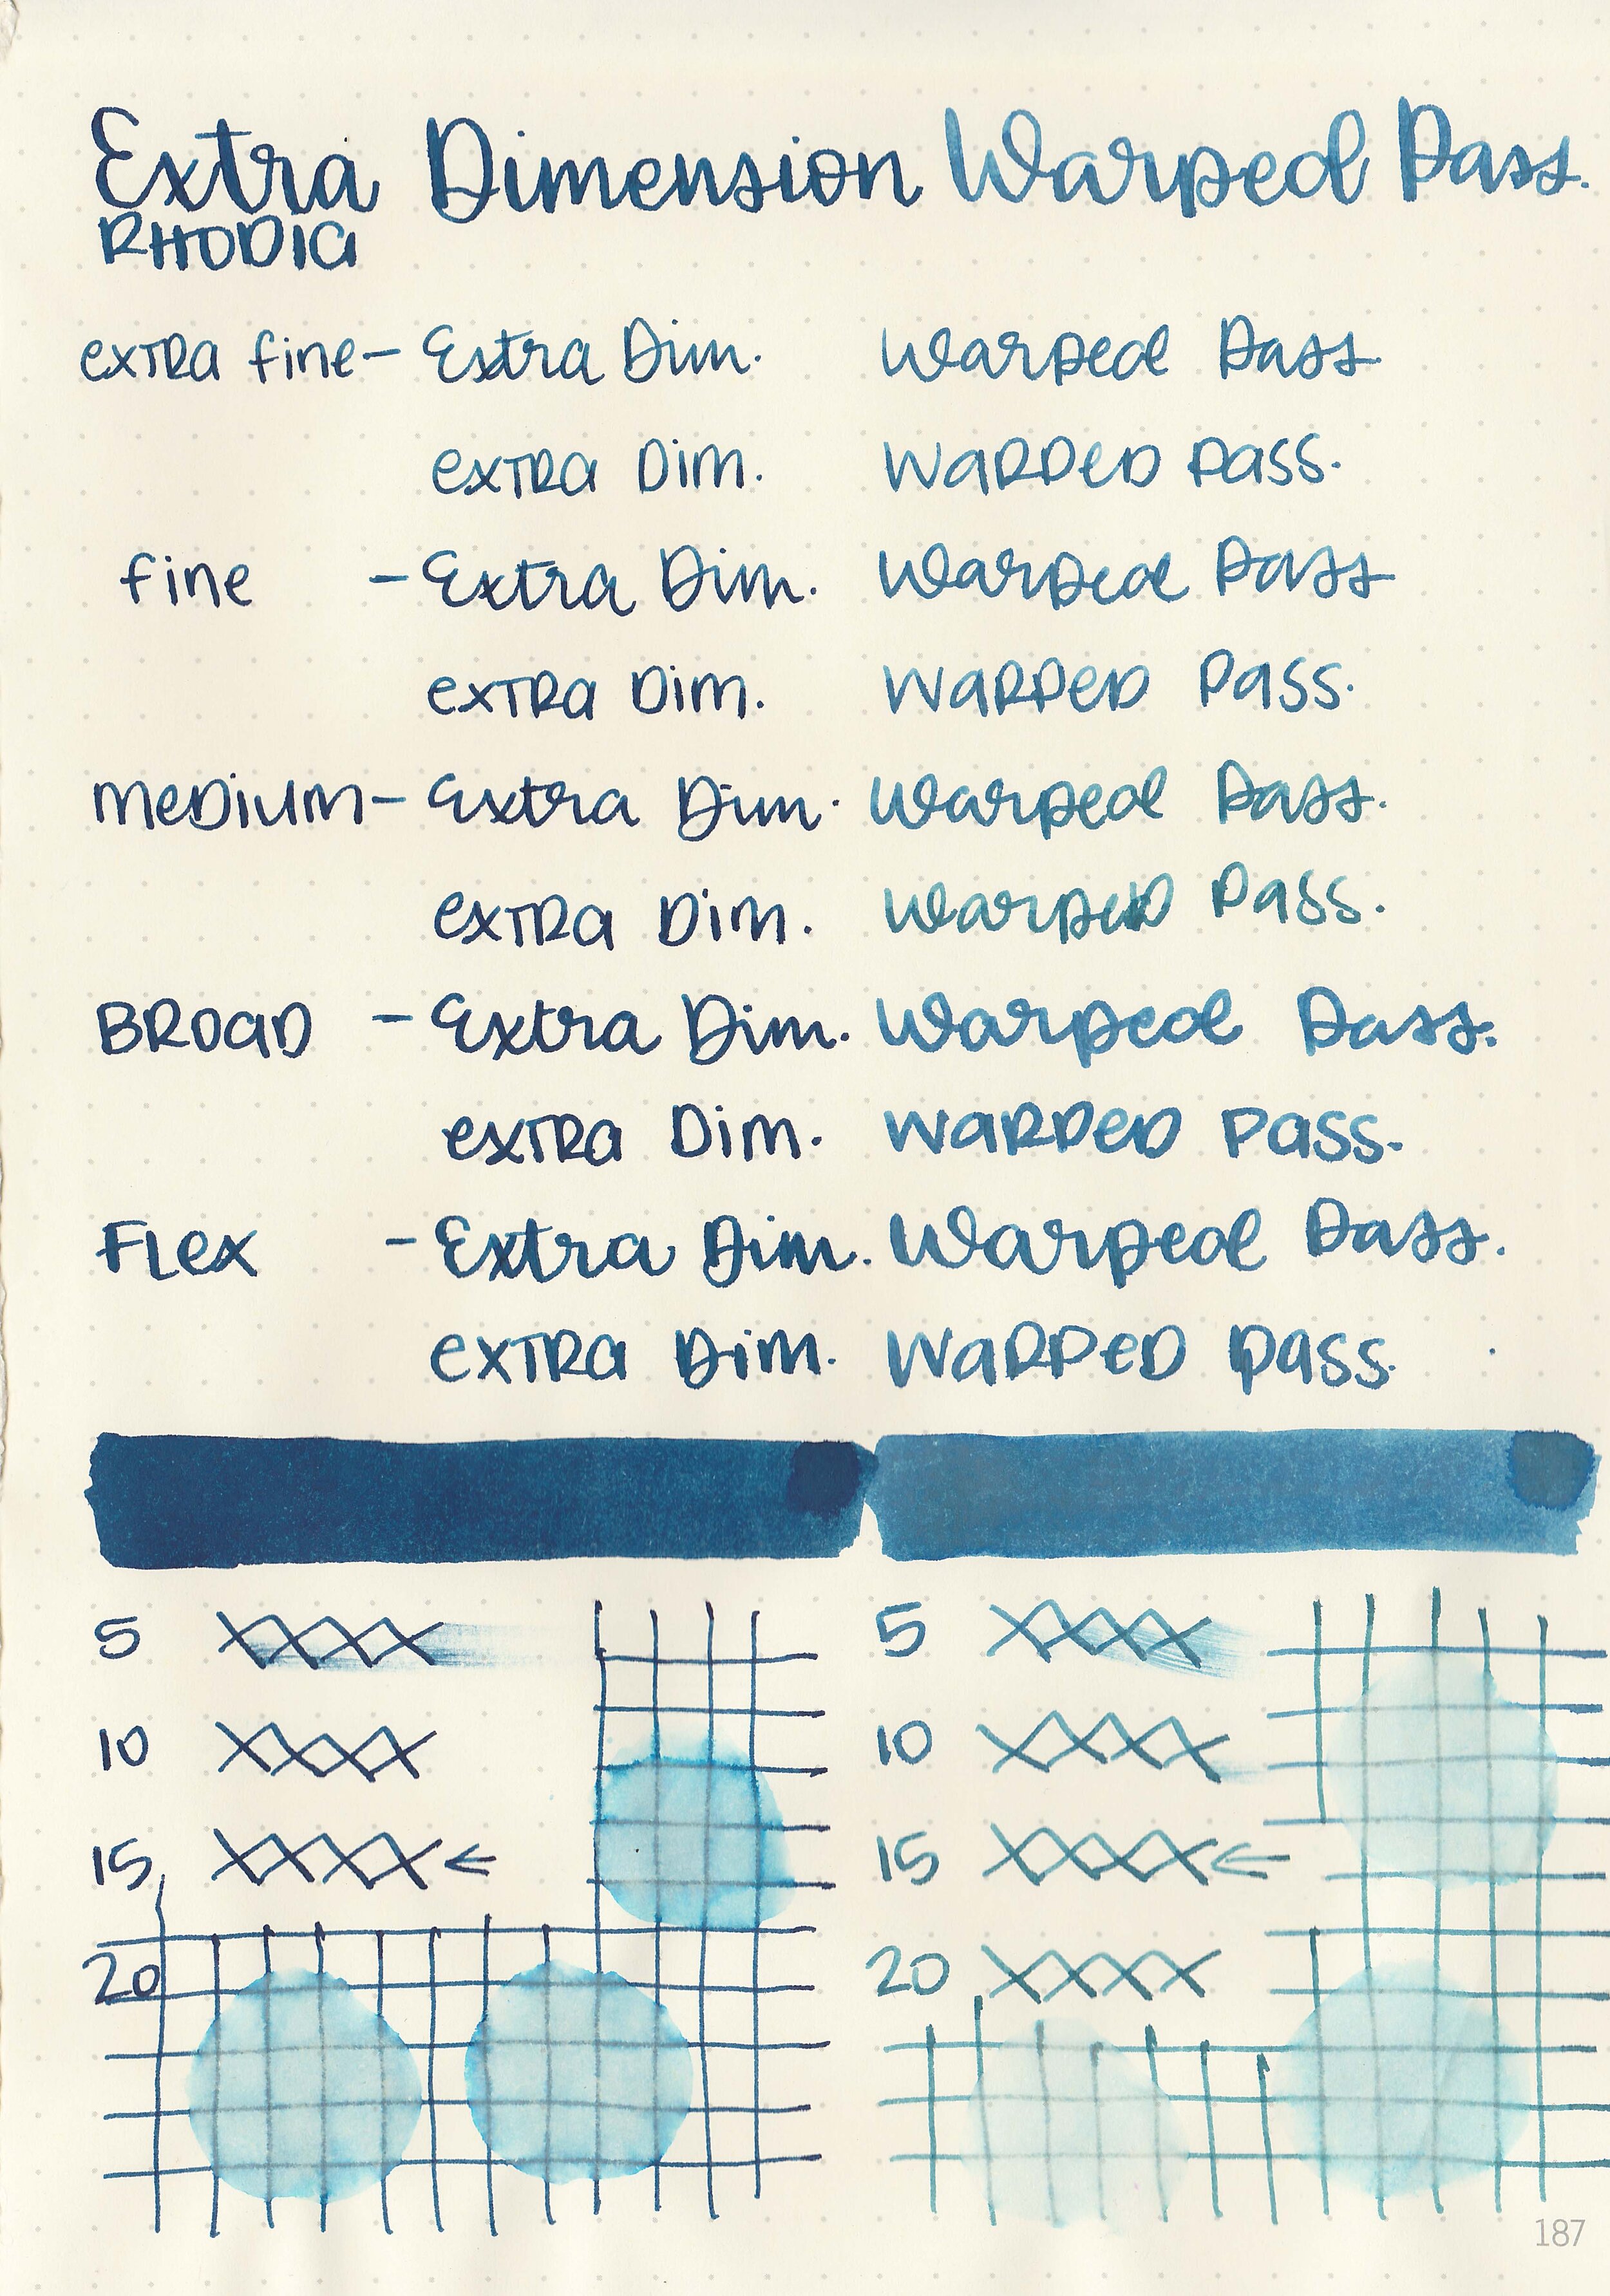 Extra Dimension Warped Pass.
RHODIA
extra fine - Extra Dim. Warped Pass
extra Dim. Warped Pass.
fine - Extra Dim. Warped Pass
extra Dim. Warped Pass.
medium - Extra Dim. Warped Pass.
extra Dim. Warped Pass.
BROAD - Extra Dim. Warped Pass.
extra Dim. Warped Pass.
Flex - Extra Dim. Warped Pass.
extra Dim. Warped Pass.
5 XXXX 5 XXXX
10 XXXX 10 XXXX
15 XXXX ← 15 XXXX ←
20 20 XXXX
187